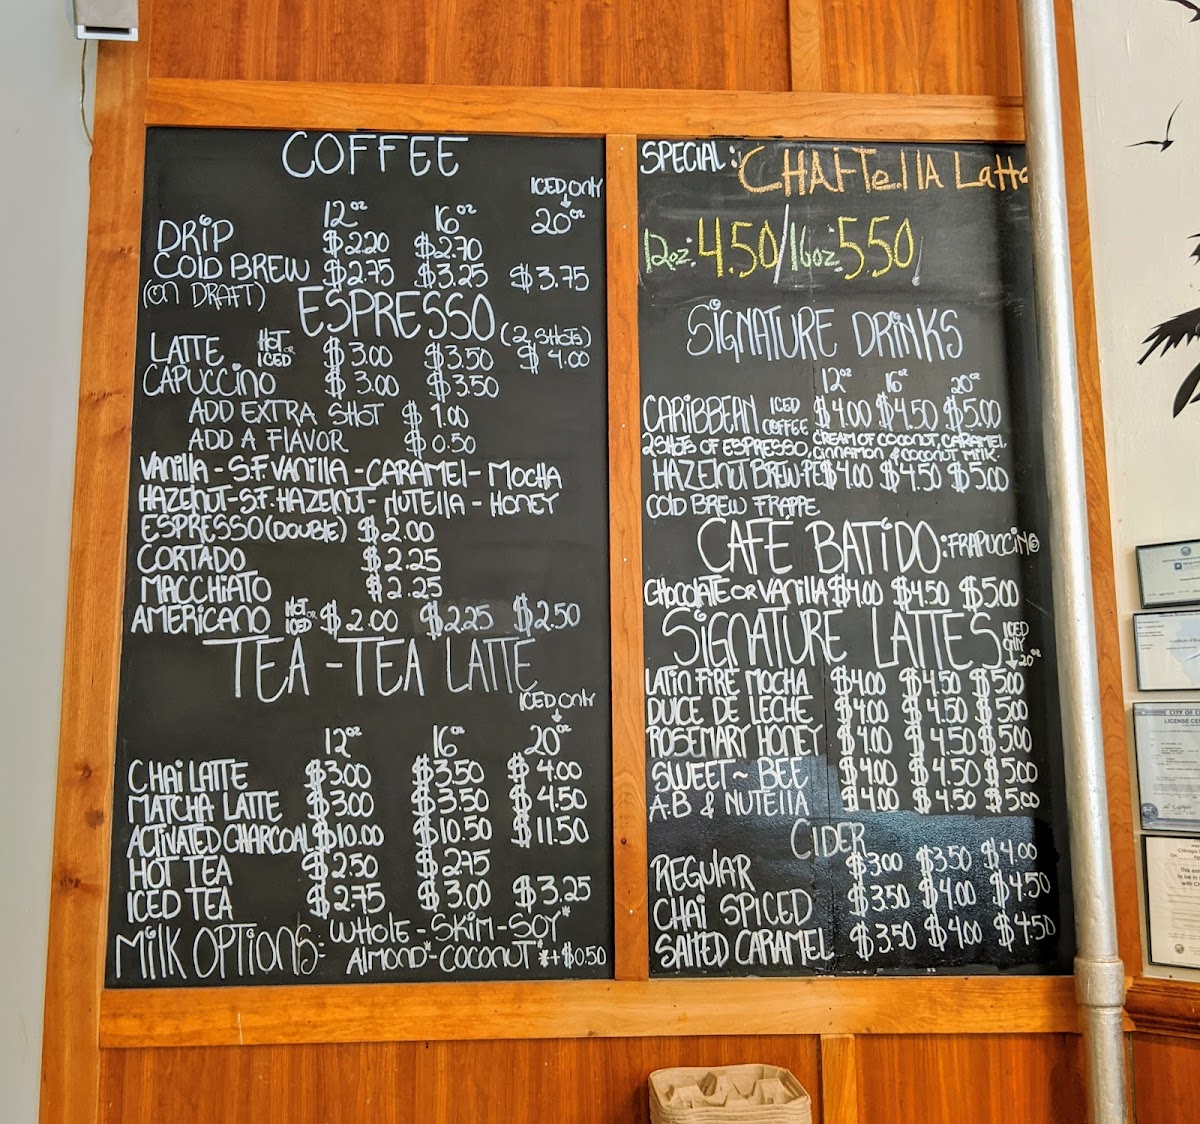 COFFEE
ICED ONLY
12oz 16oz 20oz
DRIP $2.20 $2.70
COLD BREW $2.75 $3.25 $3.75
(ON DRAFT)
ESPRESSO (2 SHOTS)
LATTE HOT OR ICED $3.00 $3.50 $4.00
CAPUCCINO $3.00 $3.50
ADD EXTRA SHOT $1.00
ADD A FLAVOR $0.50
VANILLA - S.F. VANILLA - CARAMEL - MOCHA
HAZELNUT - S.F. HAZELNUT - NUTELLA - HONEY
ESPRESSO (DOUBLE) $2.00
CORTADO $2.25
MACCHIATO $2.25
AMERICANO HOT OR ICED $2.00 $2.25 $2.50
TEA - TEA LATTE
ICED ONLY
12oz 16oz 20oz
CHAI LATTE $3.00 $3.50 $4.00
MATCHA LATTE $3.00 $3.50 $4.50
ACTIVATED CHARCOAL $10.00 $10.50 $11.50
HOT TEA $2.50 $2.75
ICED TEA $2.75 $3.00 $3.25
MILK OPTIONS: WHOLE - SKIM - SOY*
ALMOND* - COCONUT* *+$0.50
SPECIAL: CHAI-TELLA Latte
12oz: 4.50/16oz: 5.50
SIGNATURE DRINKS
12oz 16oz 20oz
CARIBBEAN ICED COFFEE $4.00 $4.50 $5.00
2 SHOTS OF ESPRESSO, CREAM OF COCONUT, CARAMEL,
CINNAMON & COCONUT MILK.
HAZELNUT BREW-PE $4.00 $4.50 $5.00
COLD BREW FRAPPE
CAFE BATIDO: FRAPUCCINO
CHOCOLATE OR VANILLA $4.00 $4.50 $5.00
SIGNATURE LATTES ICED ONLY
20oz
LATIN FIRE MOCHA $4.00 $4.50 $5.00
DULCE DE LECHE $4.00 $4.50 $5.00
ROSEMARY HONEY $4.00 $4.50 $5.00
SWEET ~ BEE $4.00 $4.50 $5.00
A.B & NUTELLA $4.00 $4.50 $5.00
CIDER
REGULAR $3.00 $3.50 $4.00
CHAI SPICED $3.50 $4.00 $4.50
SALTED CARAMEL $3.50 $4.00 $4.50